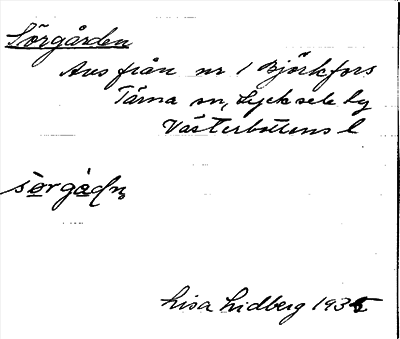 Sörgården
Avs från nr 1 Björkfors
Tärna sn, Lycksele lg
Västerbottens l
Lisa Lidberg 1935